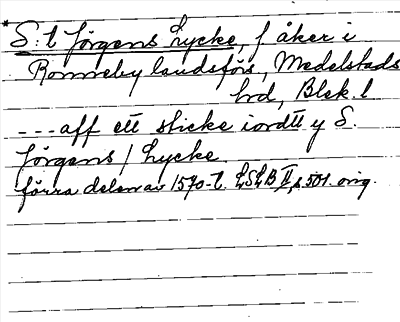 * S:t Jörgens Lycke, f åker i
Ronneby landsförs, Medelstads
hrd, Blek. l
---aff ett sticke iordtt y S.
Jörgens / Lycke
förra delen av 1570-t. LSLB II, s 501. orig.